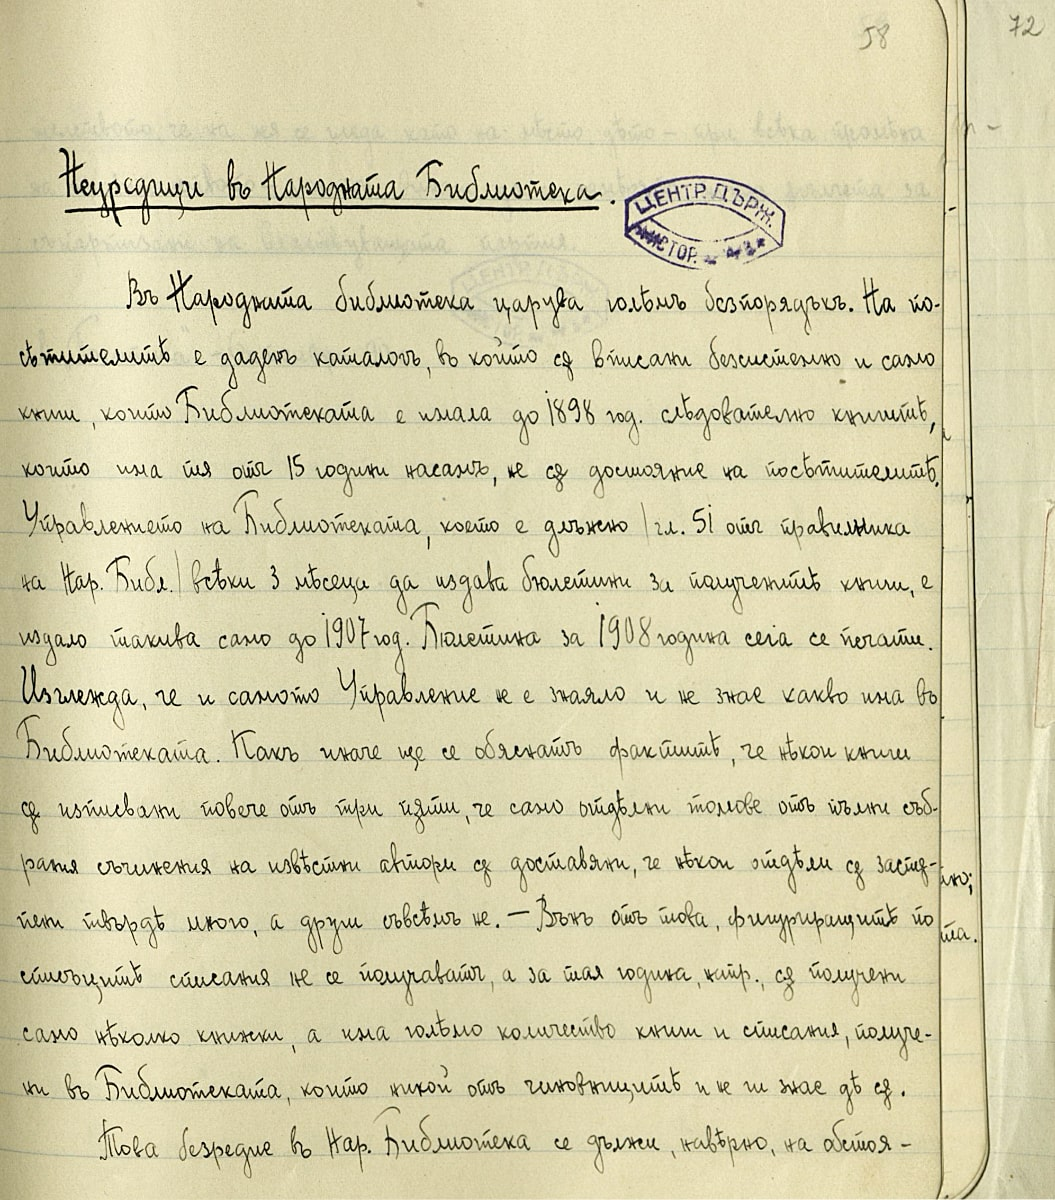 58
72
Неурѣдици въ Народната Библиотека.
ЦЕНТР. ДЪРЖ.
ИСТОР.
Въ Народната библиотека царува голѣмъ безпорядъкъ. На по-
сѣтителитѣ е даденъ каталогъ, въ който сѫ вписани безсистемно и само
книги, които Библиотеката е имала до 1898 год. слѣдователно книгитѣ,
които има тя отъ 15 години насамъ, не сѫ достояние на посѣтителитѣ.
Управлението на Библиотеката, което е длъжно /гл. 51 отъ правилника
на Нар. Библ./ всѣки 3 мѣсеци да издава бюлетини за полученитѣ книги, е
издало такива само до 1907 год. Бюлетина за 1908 година сега се печати.
Изглежда, че и самото Управление не е знаяло и не знае какво има въ
Библиотеката. Какъ иначе ще се обяснатъ фактитѣ, че нѣкои книги
сѫ изписвани повече отъ три пѫти, че само отдѣлни томове отъ пълни съб-
рания съчинения на извѣстни автори сѫ доставяни, че нѣкои отдѣли сѫ застѫ-
пени твърдѣ много, а други съвсѣмъ не. — Вънъ отъ това, фигуриращитѣ по
списъцитѣ списания не се получаватъ, а за тая година, напр., сѫ получени
само нѣколко книжки, а има голѣмо количество книги и списания, получе-
ни въ Библиотеката, които никой отъ чиновницитѣ и не ги знае дѣ сѫ.
Това безредие въ Нар. Библиотека се дължи, навѣрно, на обстоя-